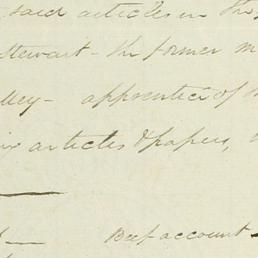 said articles in the
Stewart - the former m
ley - apprentice of
articles & papers,
Beef account -